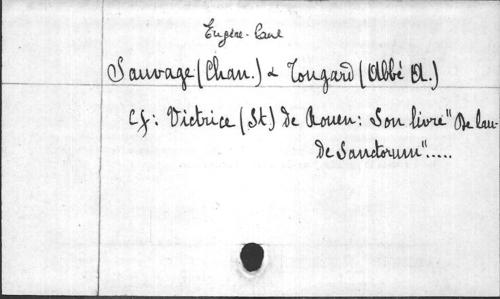 Eugène-Paul
Sauvage (Chan.) & Tougard (Abbé A.)
Cf: Victrice (St) de Rouen: Son livre "De lau-
de Sanctorum".....